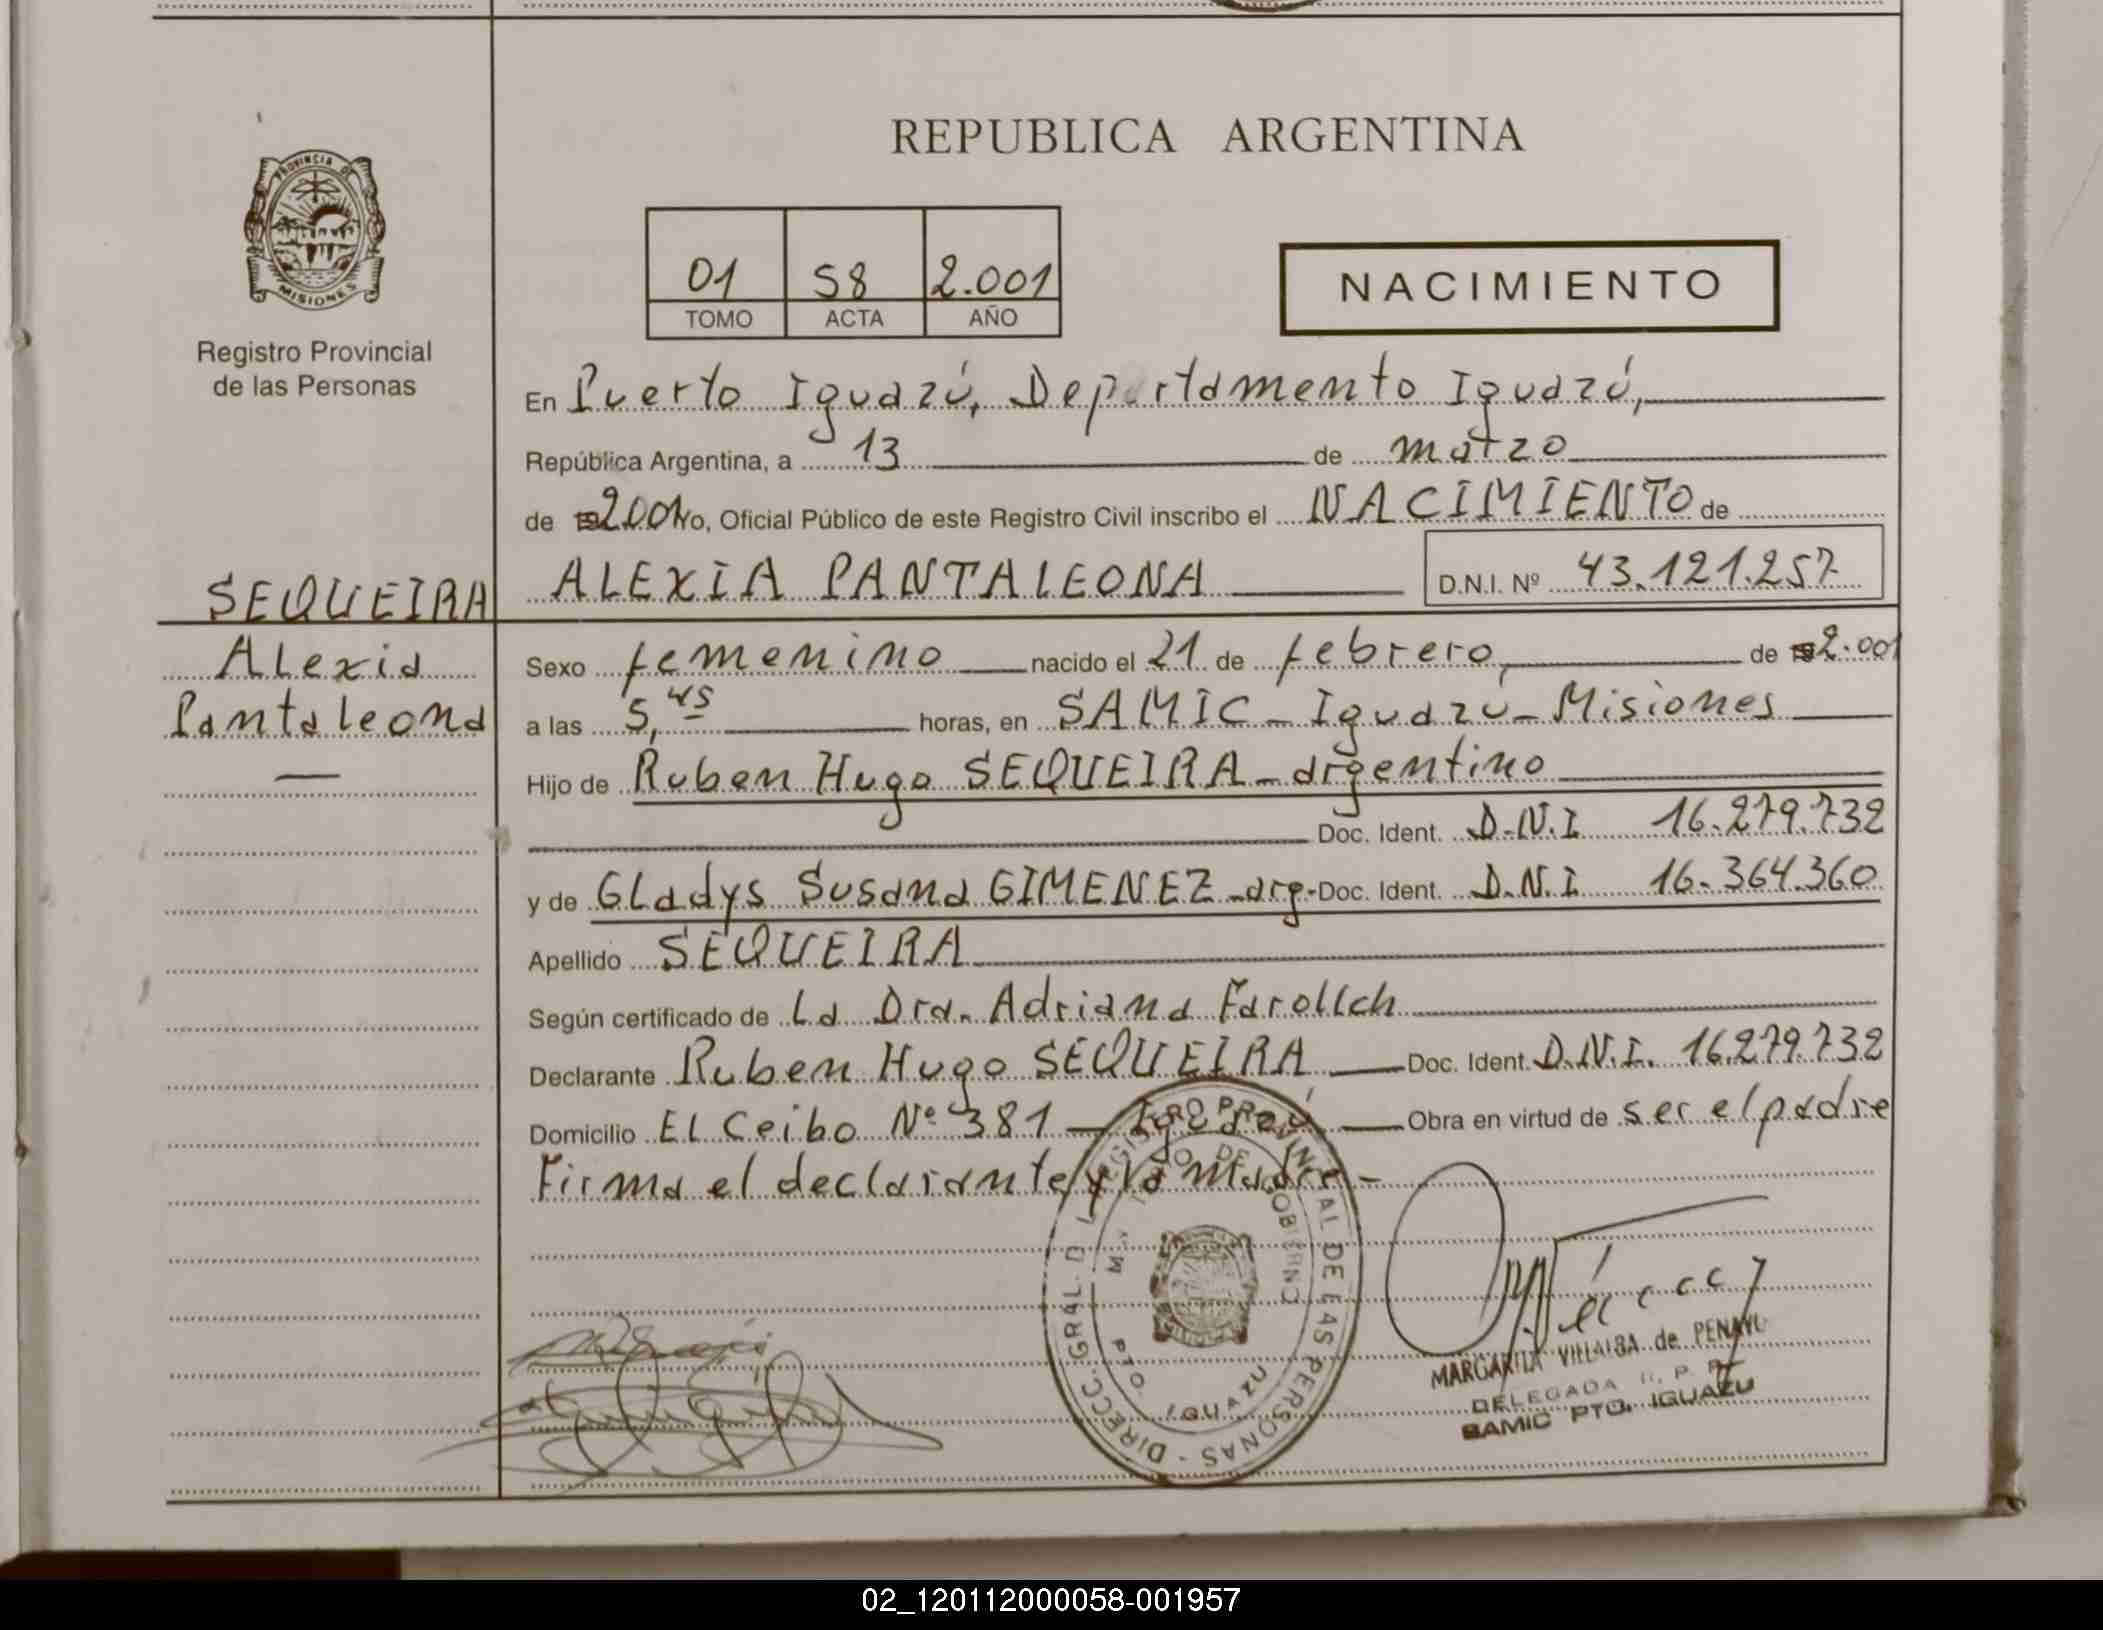 REPUBLICA ARGENTINA
PROVINCIA DE
MISIONES
Registro Provincial
de las Personas
01 58 2.001
TOMO ACTA AÑO
NACIMIENTO
En Puerto Iguazú, Departamento Iguazú,
República Argentina, a 13 de marzo
de 2001 Yo, Oficial Público de este Registro Civil inscribo el NACIMIENTO de
SEQUEIRA
Alexia
Pantaleona
ALEXIA PANTALEONA D.N.I. Nº 43.121.257
Sexo femenino nacido el 21 de febrero, de 2.001
a las 5,45 horas, en SAMIC - Iguazú - Misiones
Hijo de Ruben Hugo SEQUEIRA - argentino
Doc. Ident. D.N.I 16.279.732
y de Gladys Susana GIMENEZ - arg- Doc. Ident. D.N.I 16.364.360
Apellido SEQUEIRA
Según certificado de La Dra. Adriana Farollch
Declarante Ruben Hugo SEQUEIRA Doc. Ident. D.N.I. 16.279.732
Domicilio El Ceibo Nº 381 - Iguazú Obra en virtud de ser el padre
Firma el declarante y la madre -
DIRECC. GRAL. D L REGISTRO PROVINCIAL DE LAS PERSONAS -
DE GOBIERNO
PTO. IGUAZU
MARGARITA VILLALBA de PENAYO
DELEGADA R. P. P.
SAMIC PTO. IGUAZU
02_120112000058-001957